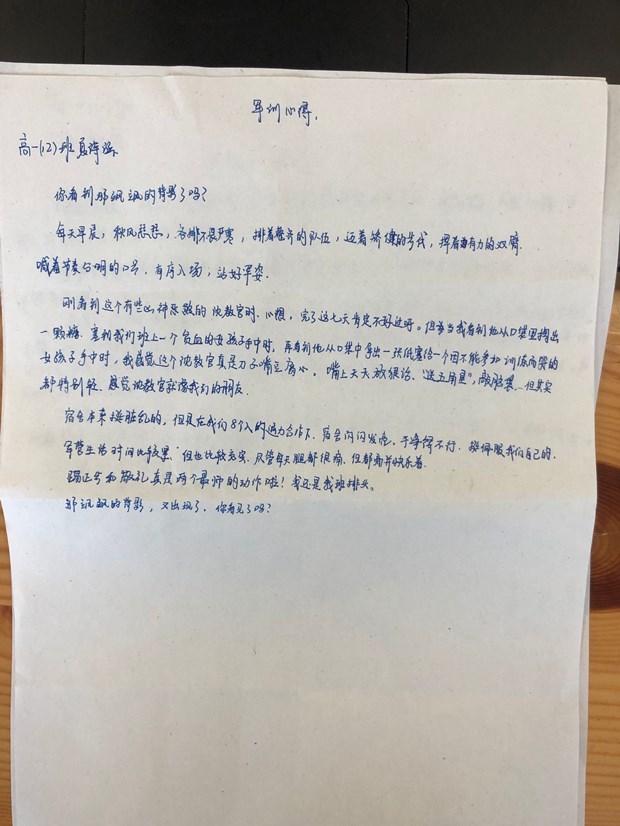 军训心得.
高一(12)班 夏诗涵
你看到那飒飒的背影了吗?
每天早晨,秋风瑟瑟,各排不畏严寒,排着整齐的队伍,迈着矫健的步伐,挥着有力的双臂.
喊着节奏分明的口号,有序入场,站好军姿.
刚看到这个有些凶神恶煞的沈教官时.心想,完了这七天肯定不好过呀。但每当我看到他从口袋里掏出
一颗糖.塞到我们班上一个贫血的女孩子手中时,再看到他从口袋中拿出一张纸塞给一个因不能参加训练而哭的
女孩子手中时,我感觉这个沈教官真是刀子嘴豆腐心。嘴上天天放狠话."送五角星",敲脑袋...但其实
都特别轻.感觉沈教官就像我们的朋友.
宿舍本来挺脏乱的,但是在我们8个人的通力合作下.宿舍闪闪发亮,干净得不行.挺佩服我们自己的.
军营生活时间比较累.但也比较充实.尽管每天腿都很痛.但都痛并快乐着.
踢正步和敬礼真是两个最帅的动作啦!我还是我班排头.
那飒飒的背影,又出现了.你看见了吗?